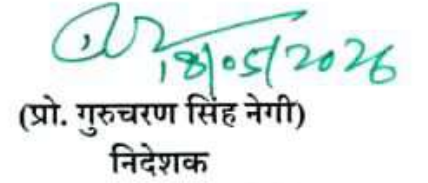 18/05/2026
(प्रो. गुरुचरण सिंह नेगी)
निदेशक